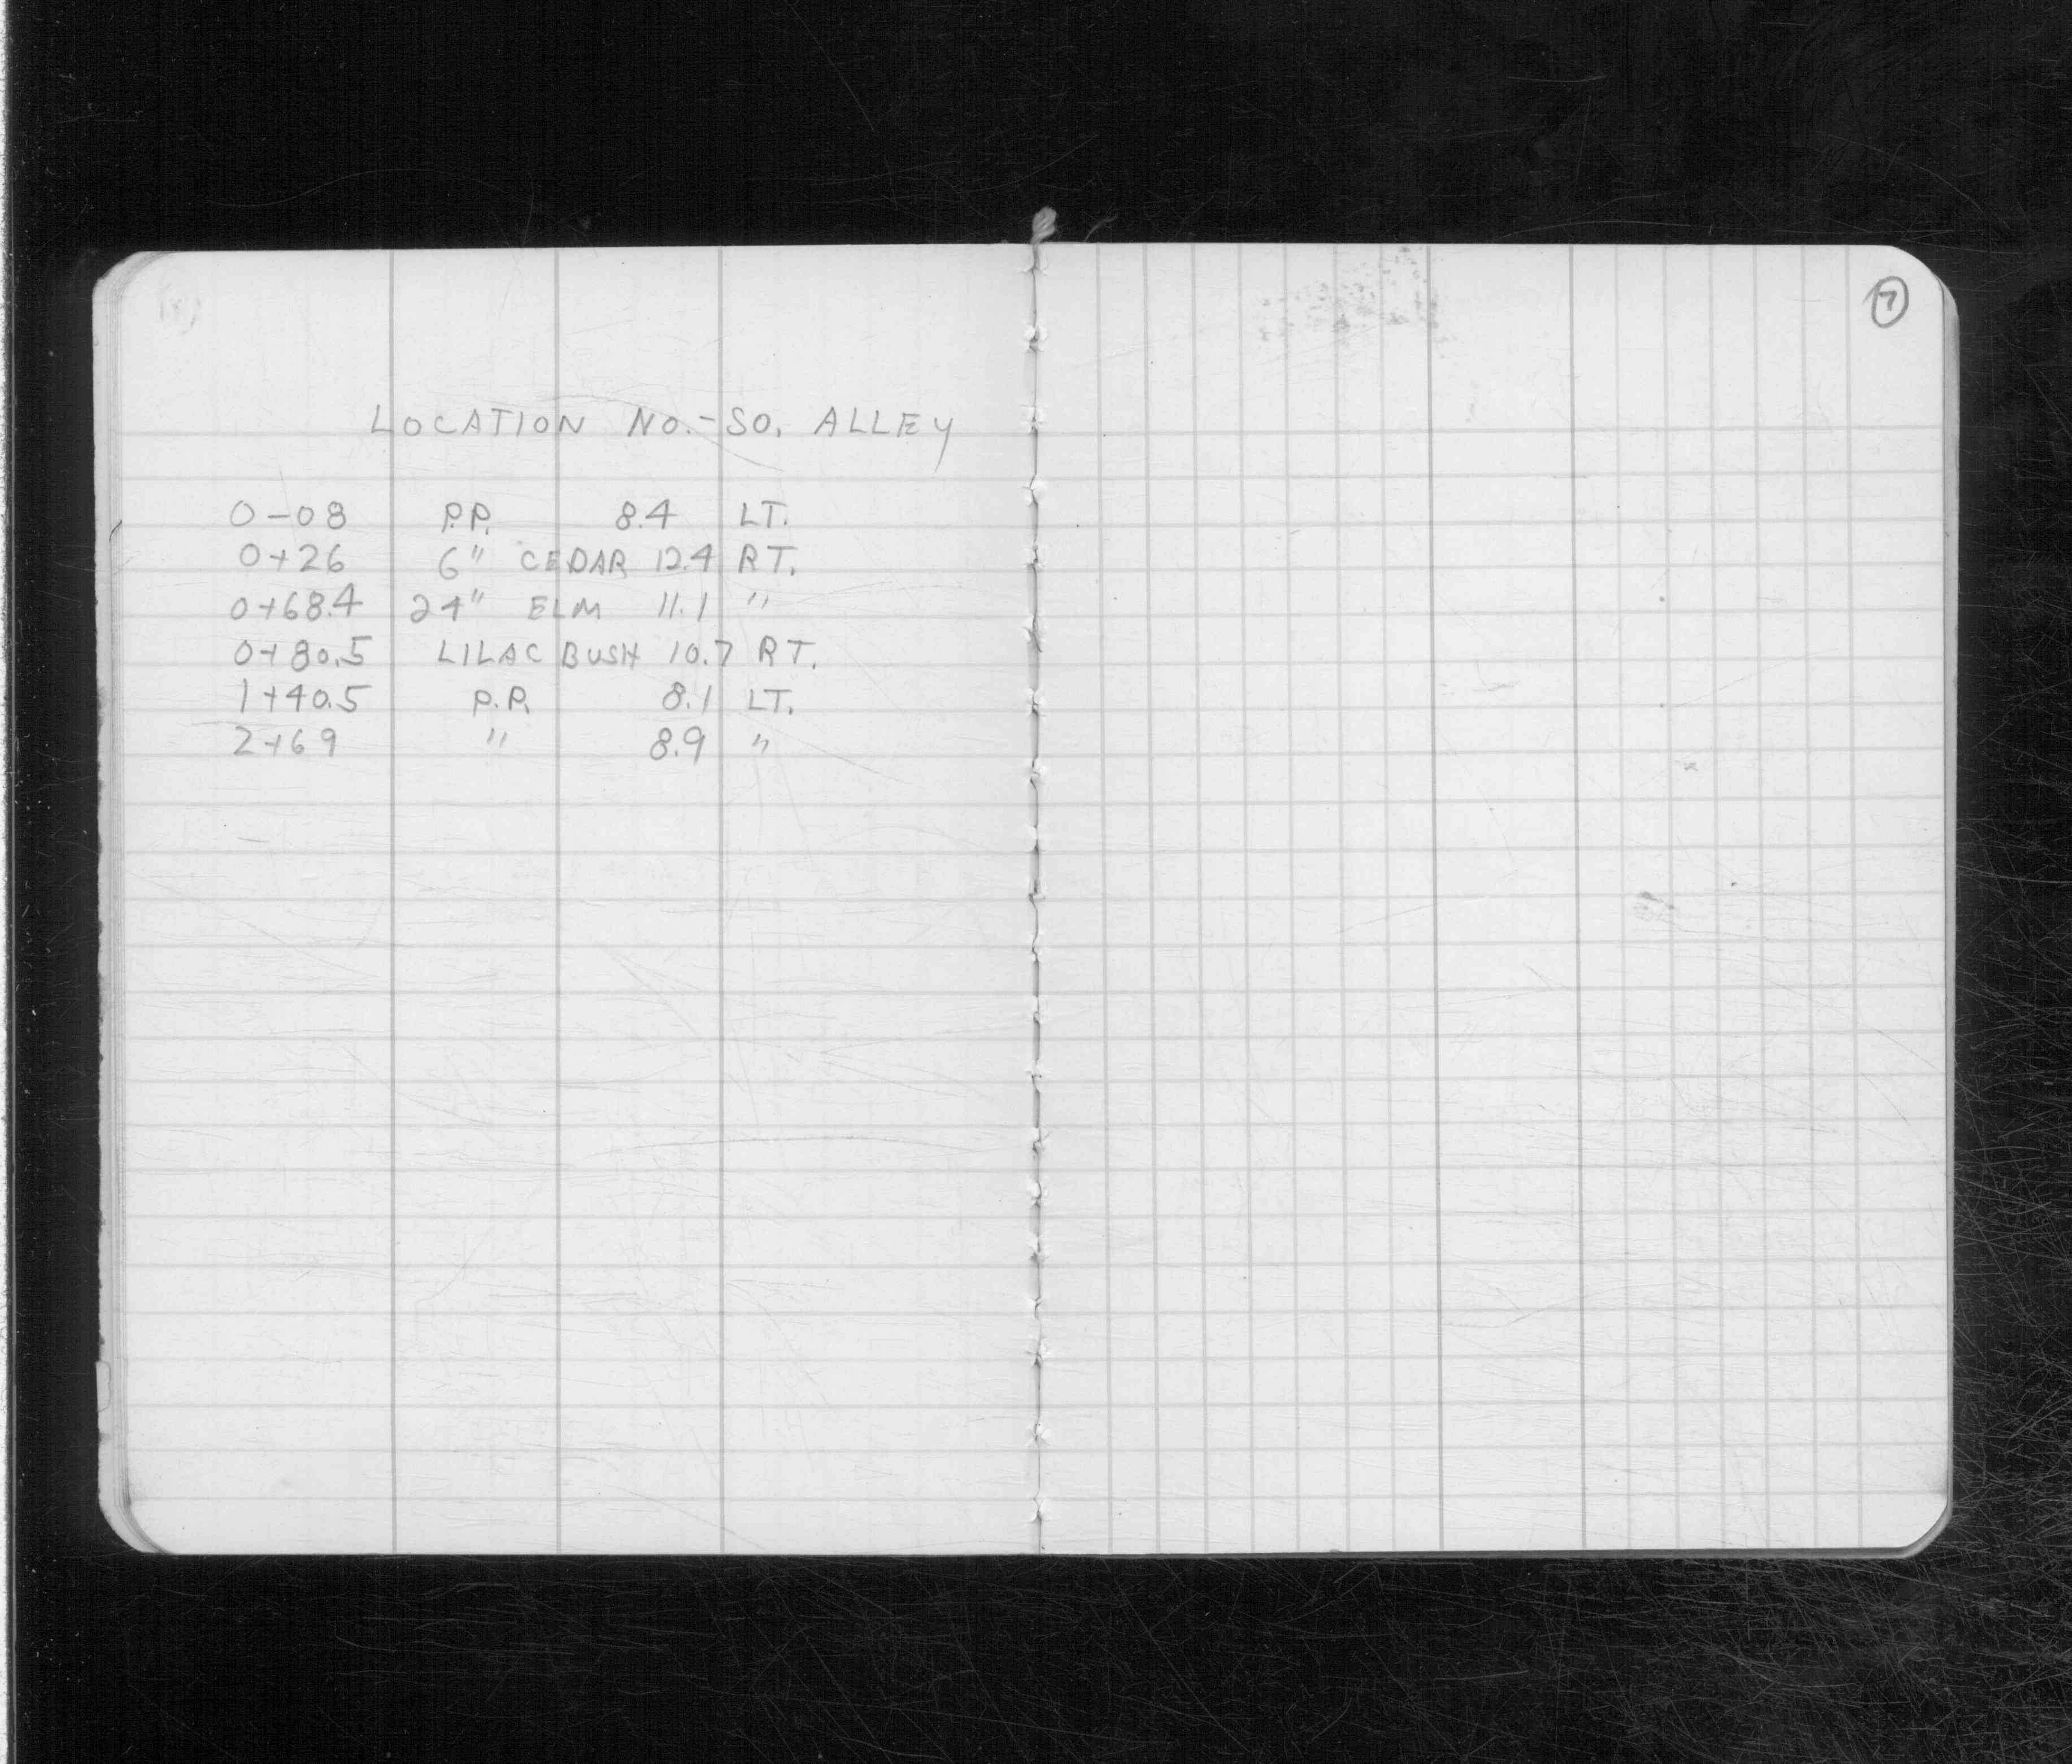 LOCATION NO.-SO. ALLEY
0-08 P.P. 8.4 LT.
0+26 6" CEDAR 12.4 RT.
0+68.4 24" ELM 11.1 "
0+80.5 LILAC BUSH 10.7 RT.
1+40.5 P.P. 8.1 LT.
2+69 " 8.9 "
7